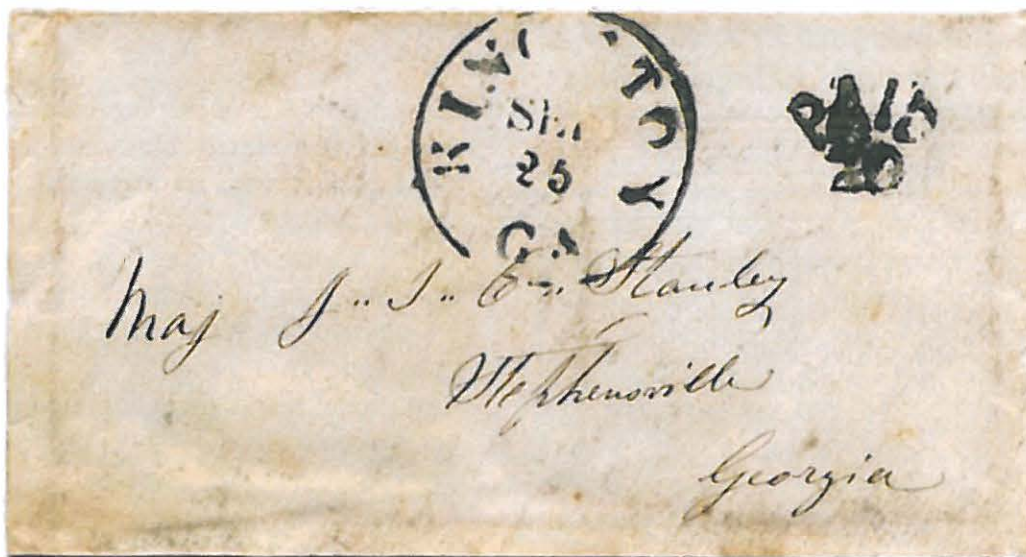 KINGSTON
SEP
25
GA
PAID
10
Maj J. I. E. Stanley
Stephensville
Georgia